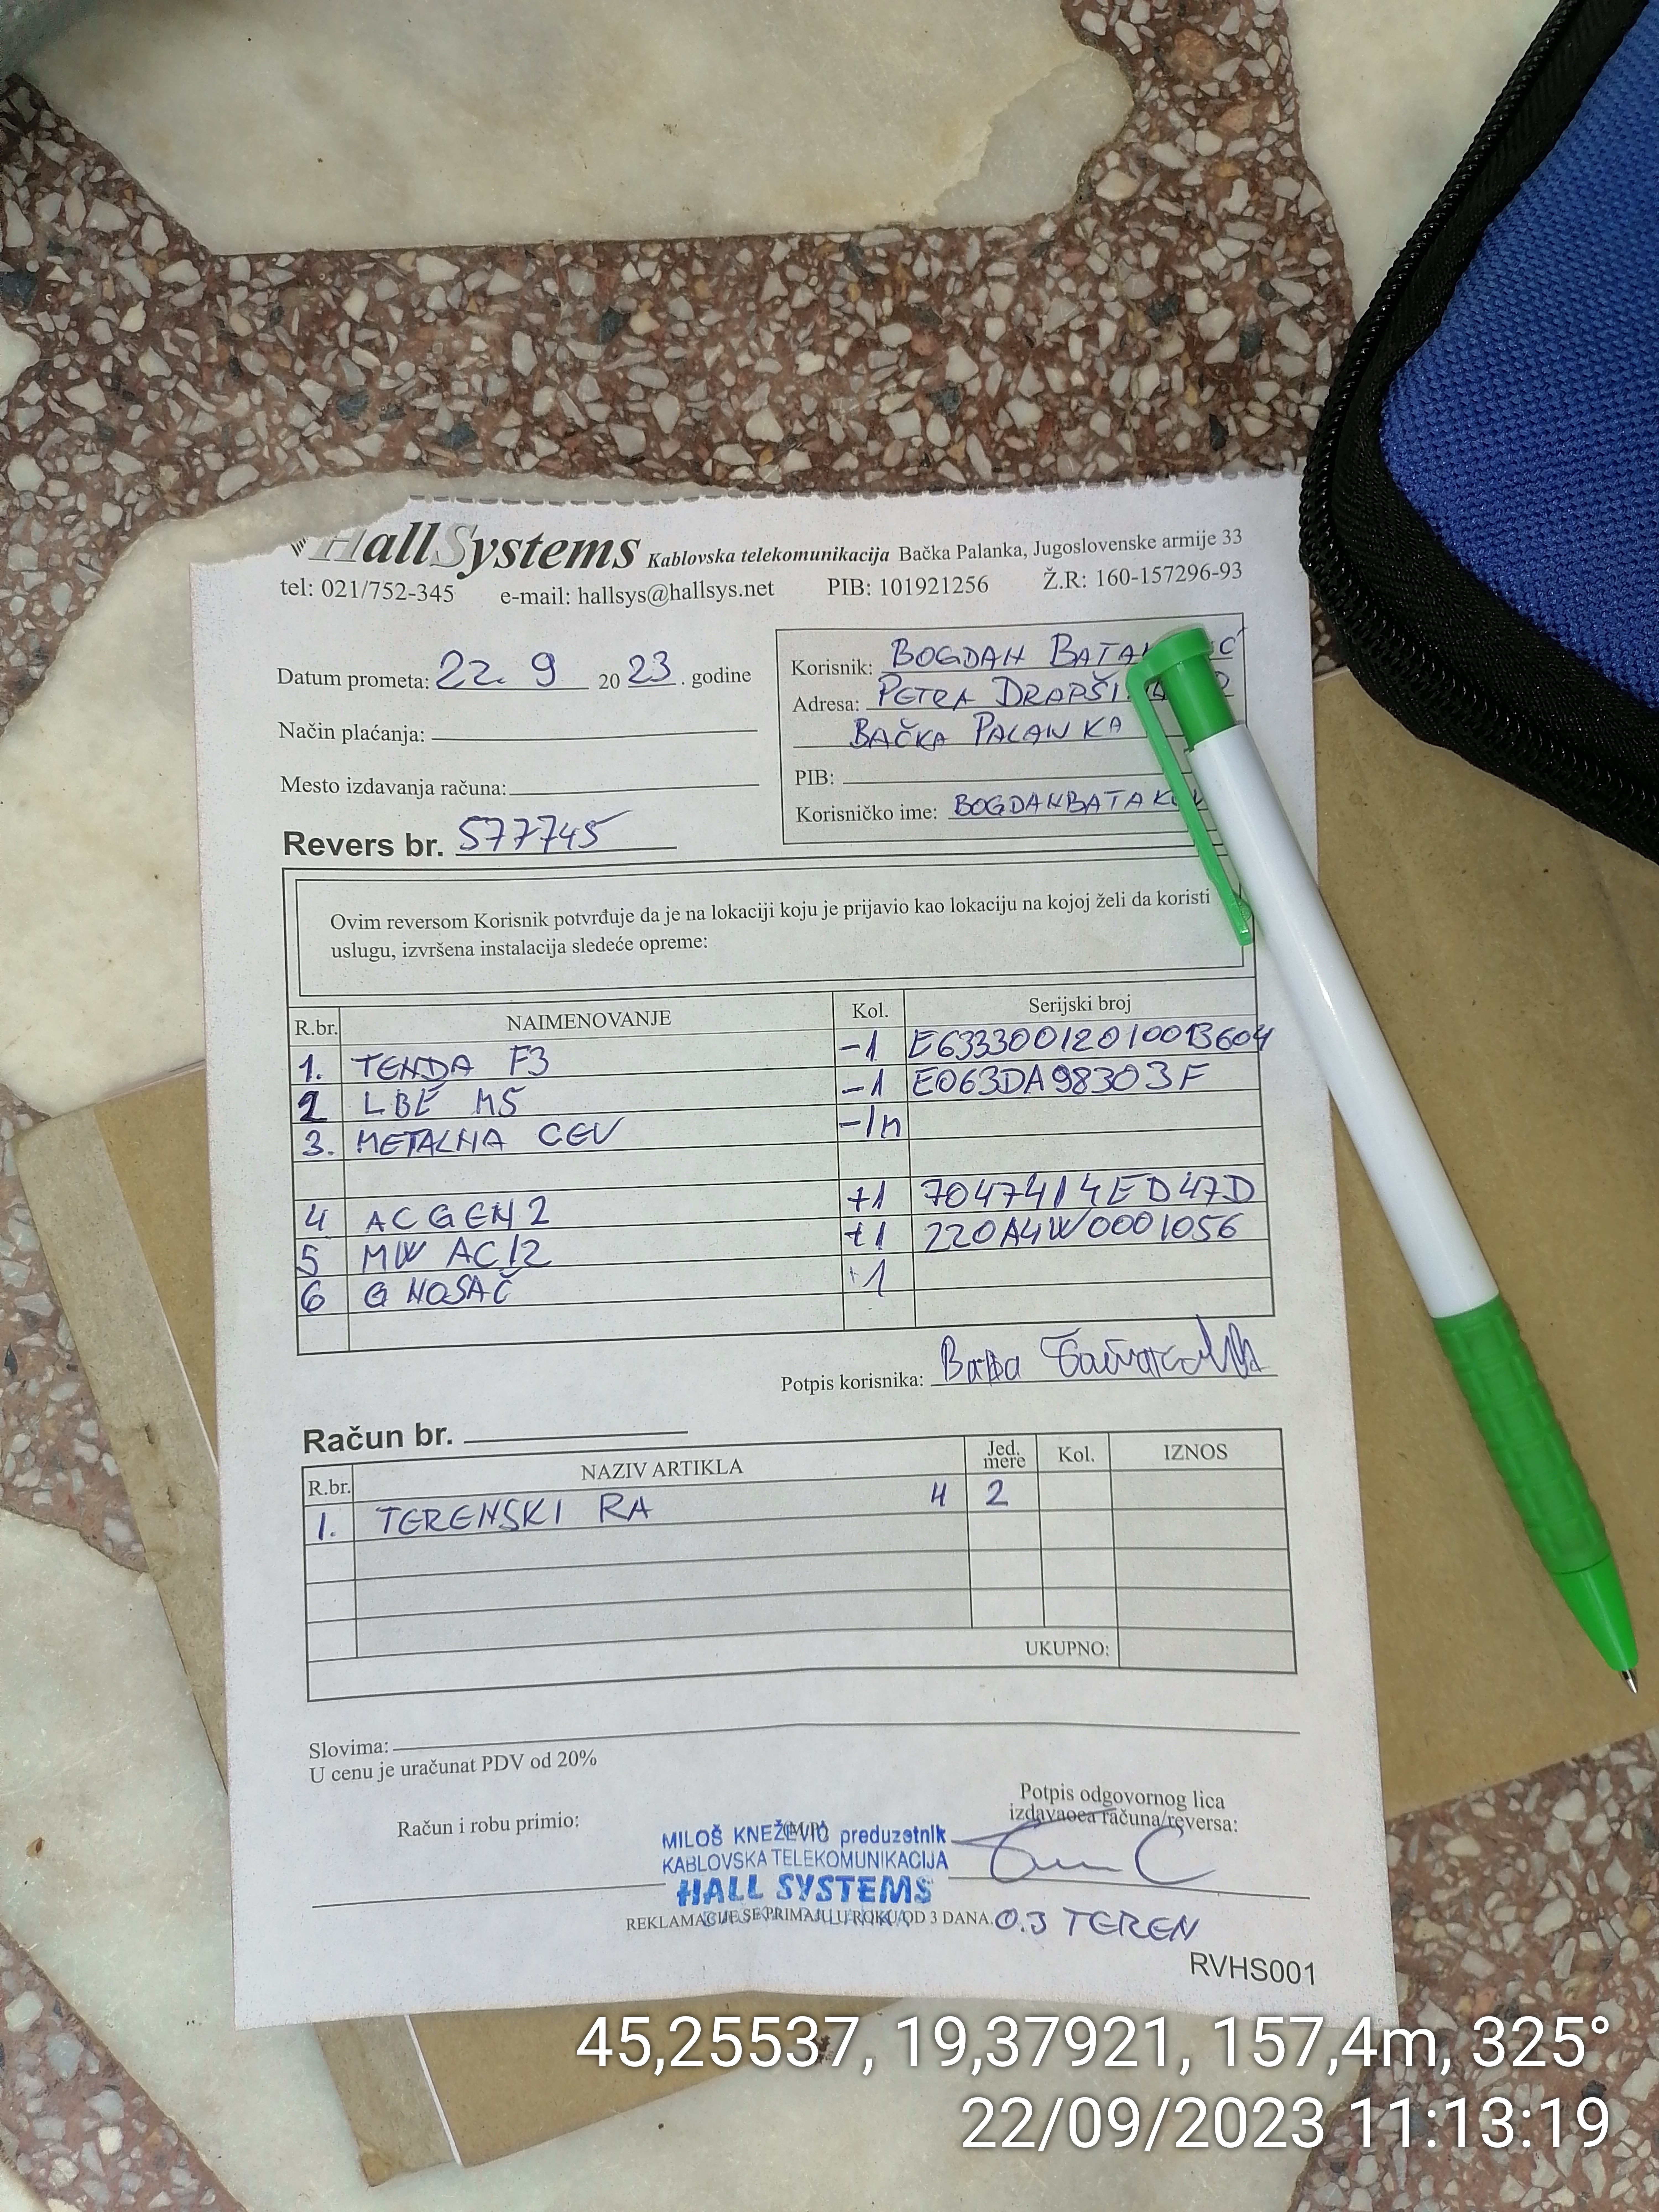 HallSystems Kablovska telekomunikacija Bačka Palanka, Jugoslovenske armije 33
tel: 021/752-345 e-mail: hallsys@hallsys.net PIB: 101921256 Ž.R: 160-157296-93
Datum prometa: 22. 9 2023. godine
Način plaćanja:
Mesto izdavanja računa:
Revers br. 577745
Korisnik: BOGDAN
Adresa: PETRA
BAČKA PALANKA
PIB:
Korisničko ime:
Ovim reversom Korisnik potvrđuje da je na lokaciji koju je prijavio kao lokaciju na kojoj želi da koristi
uslugu, izvršena instalacija sledeće opreme:
R.br. NAIMENOVANJE Kol. Serijski broj
1. TENDA F3 -1 E63330012010013604
2 LBE M5 -1 E063DA98303F
3. METALNA CEV -1m
4 AC GEN 2 +1 7047414ED47D
5 MW AC12 +1 220A4W0001056
6 G NOSAČ +1
Potpis korisnika:
Račun br.
R.br. NAZIV ARTIKLA Jed. mere Kol. IZNOS
1. TERENSKI RA 4 2
UKUPNO:
Slovima:
U cenu je uračunat PDV od 20%
Račun i robu primio:
Potpis odgovornog lica
izdavaoca računa/reversa:
(M.P.)
MILOŠ KNEŽEVIĆ preduzetnik
KABLOVSKA TELEKOMUNIKACIJA
HALL SYSTEMS
REKLAMACIJE SE PRIMAJU U ROKU OD 3 DANA. 0.3 TEREN
RVHS001
45,25537, 19,37921, 157,4m, 325°
22/09/2023 11:13:19